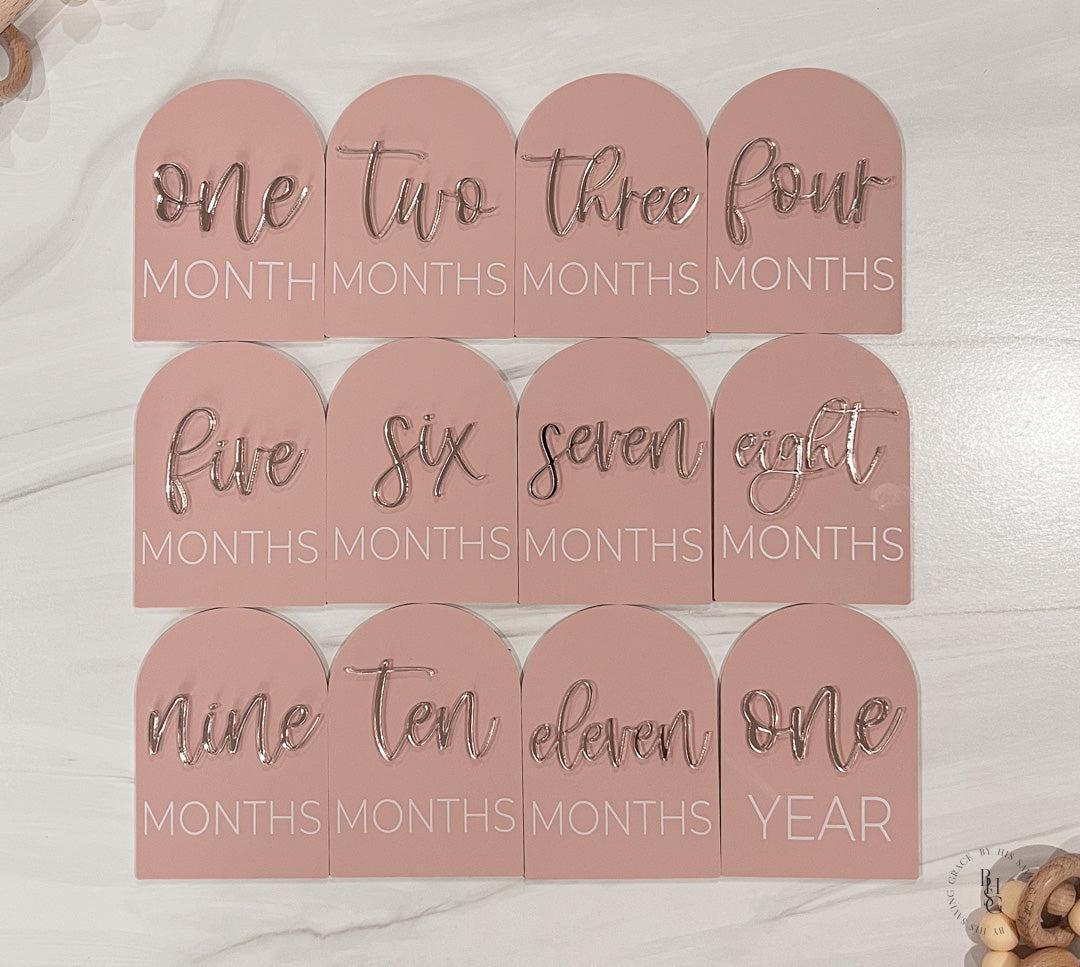 one two three four
MONTH MONTHS MONTHS MONTHS
five six seven eight
MONTHS MONTHS MONTHS MONTHS
nine ten eleven one
MONTHS MONTHS MONTHS YEAR
BY HIS SAVING GRACE
BHSG
BY HIS SAVING GRACE